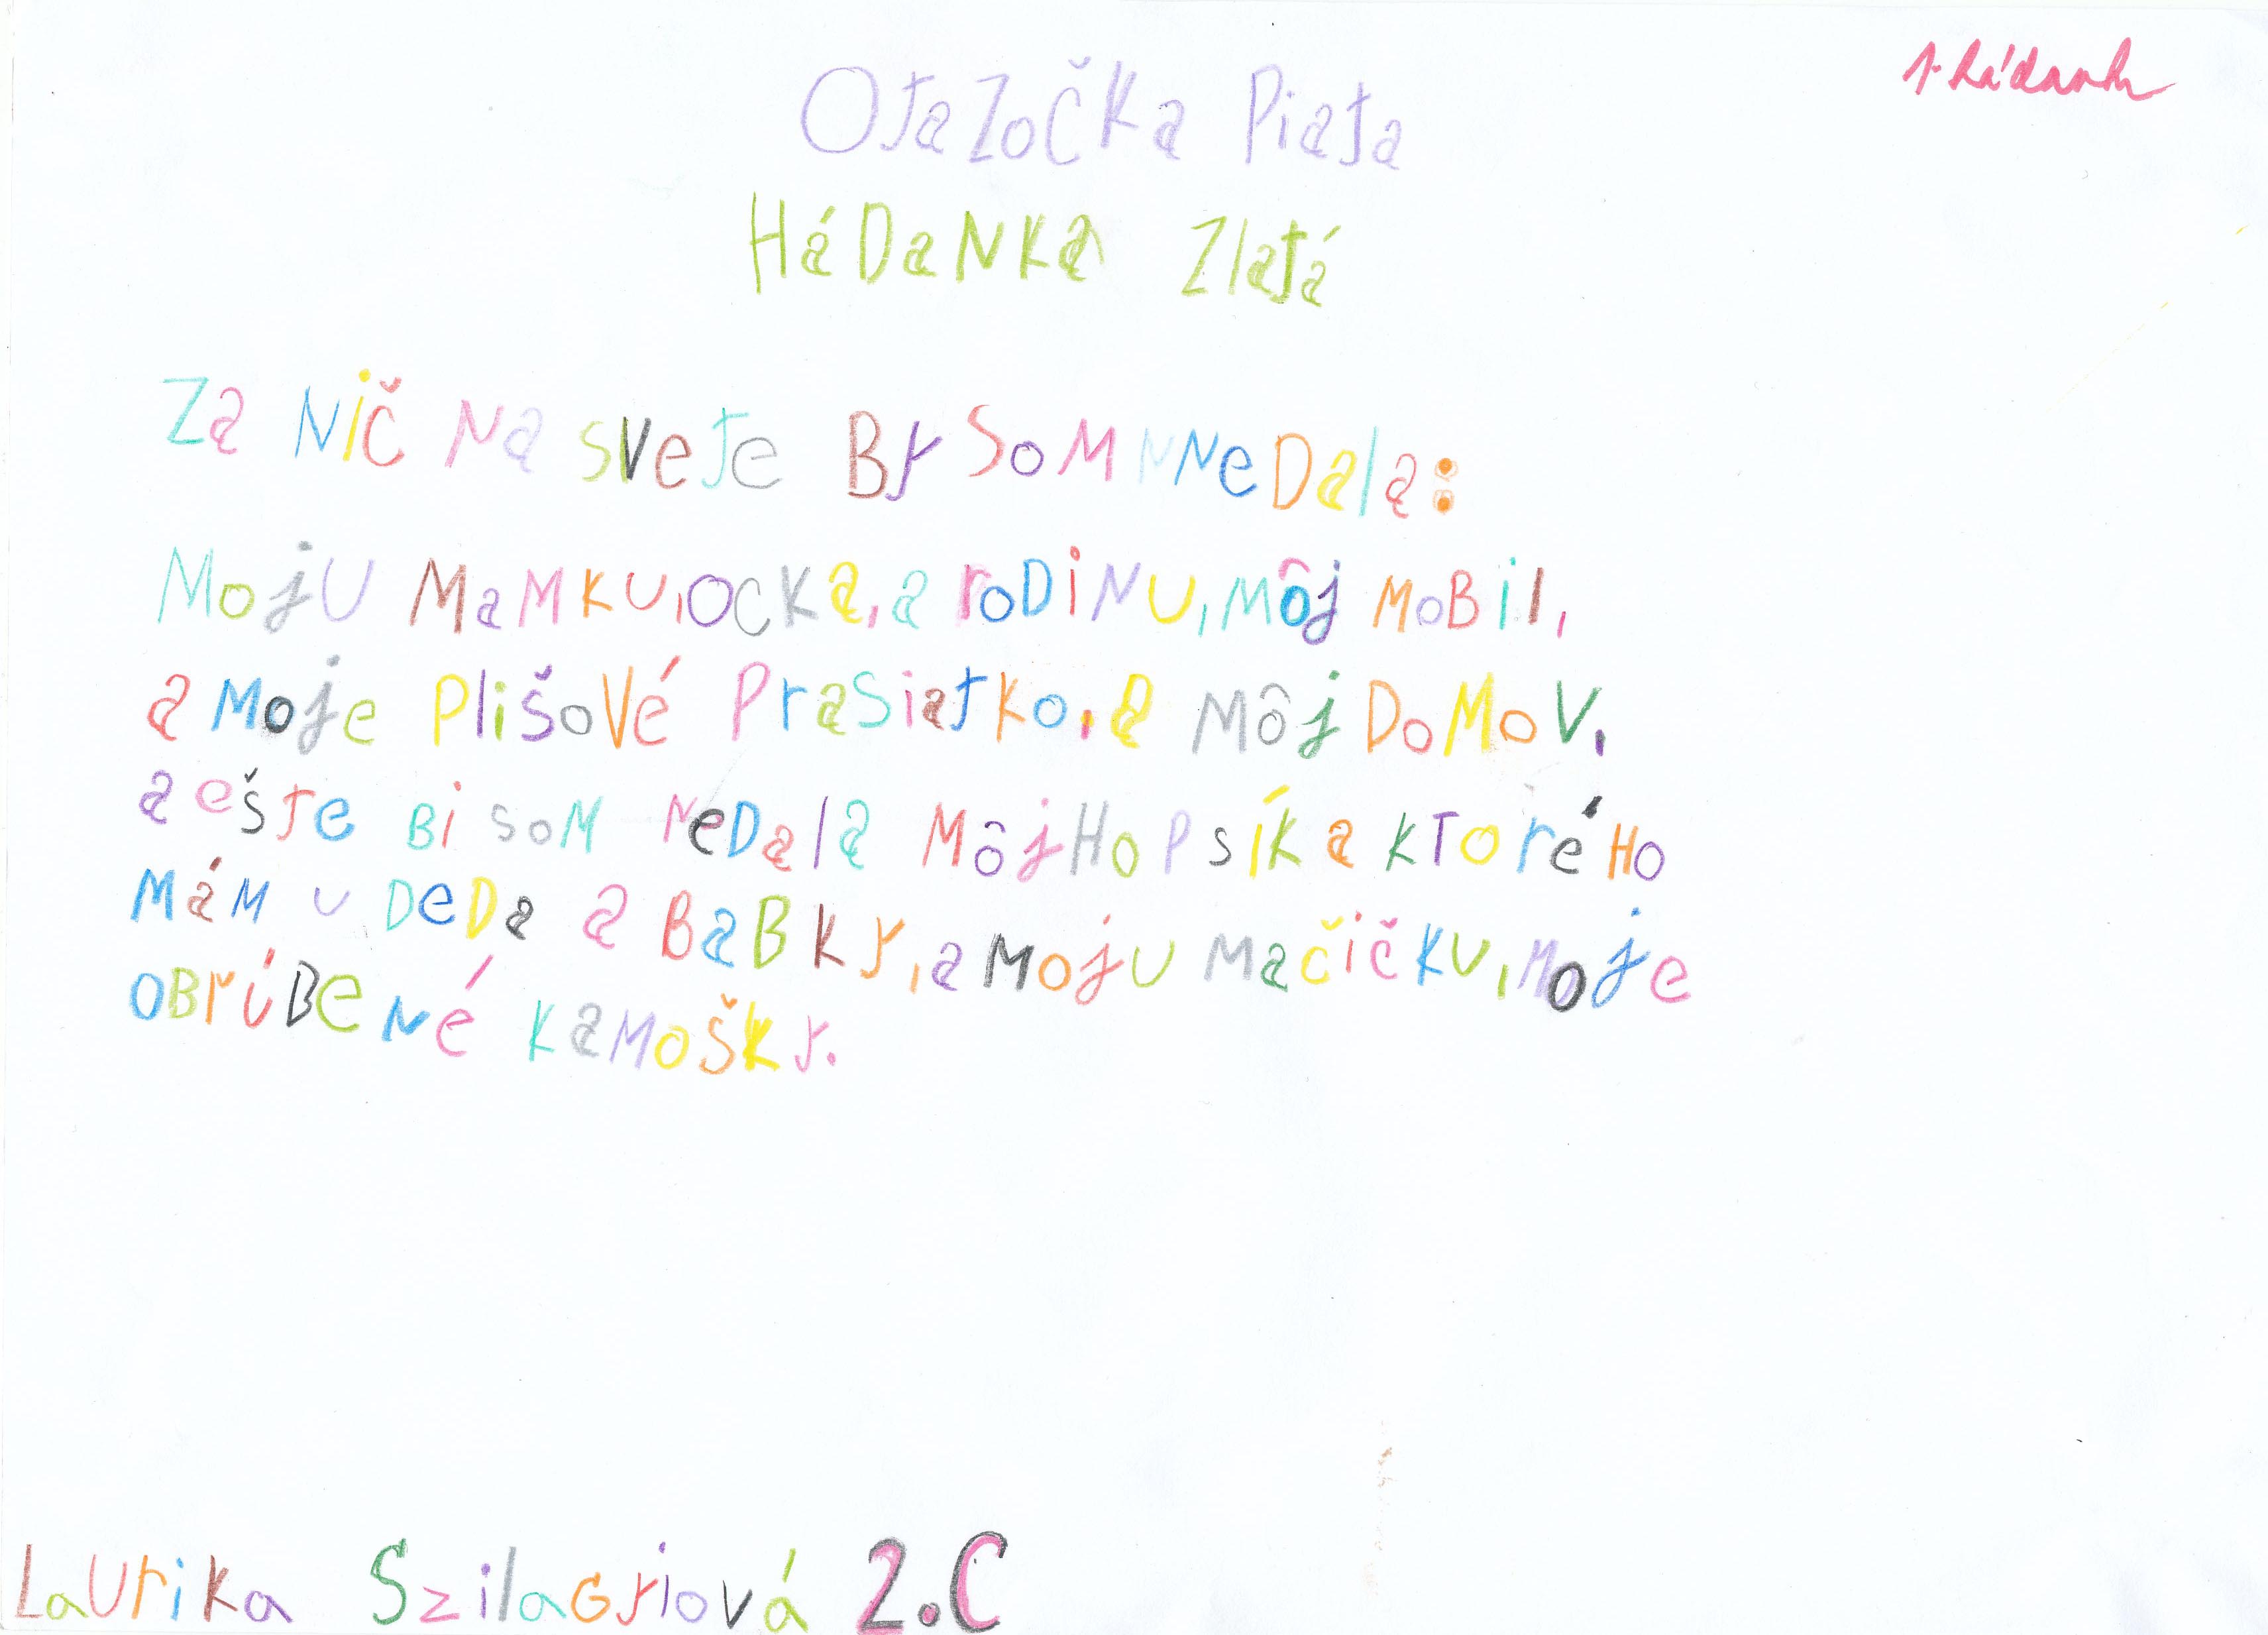 1. hádanka
OtaZoČKa Piata
HáDaNKa Zlatá
Za Nič Na sveте By SoM NNeDala:
MojU MaMKU, OCKa, a roDiNU, Môj MoBil,
a Moje Plišové PraSiatko, a Môj DoMoV,
a ešte Bi soM NeDala MôjHo Psíka kTorého
MáM u DeDa a BaBky, a Moju Mačičku, Moje
oBríBeNé KaMošky.
LaUrika SzilaGyiová 2.C